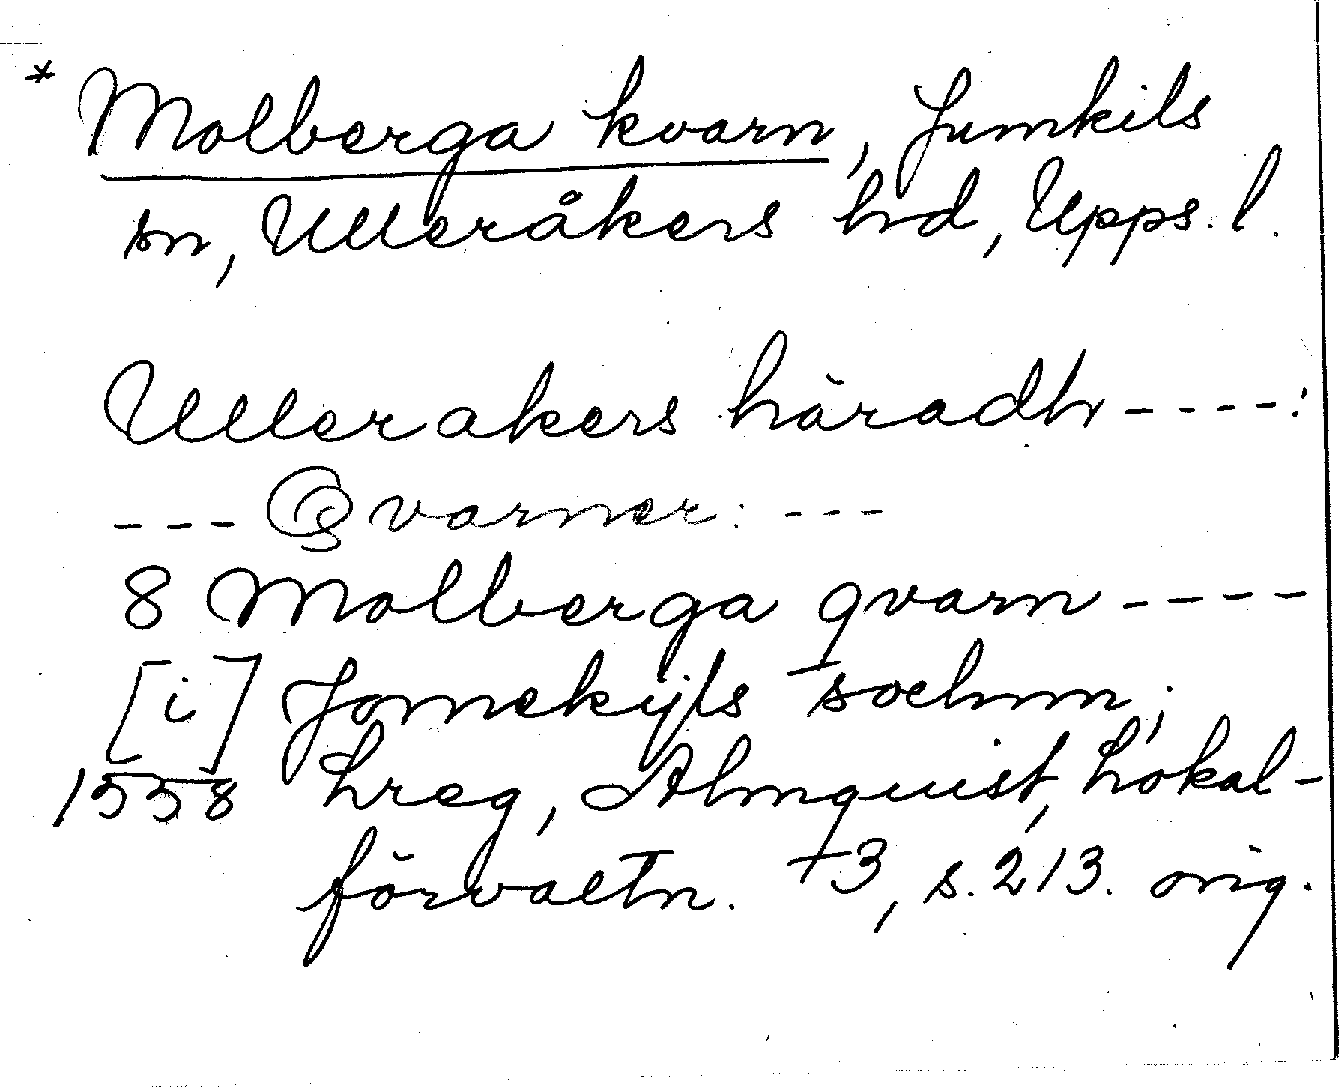 * Molberga kvarn, Jumkils
sn, Ulleråkers hd, Upps. l.
Ullerakers häradh ----:
--- Qvarner: ---
8 Molberga qvarn ----
[i] Jomekijls sochnn;
1558 hreg, Almquist, Lokal-
förvaltn. +3, s. 213. orig.